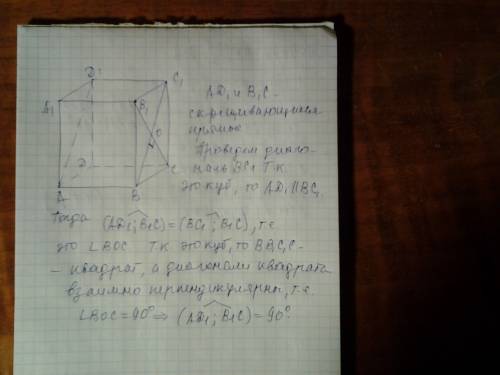 D1
C1
A1
B1
O
D
C
A
B
AD1 и B1C -
скрещивающиеся
прямые
Проведем диаго-
наль BC1 Т.к.
это куб, то AD1 || BC1
Тогда (AD1; B1C) = (BC1; B1C), т.е
это ∠BOC Т.к это куб, то BB1C1C -
- квадрат, а диагонали квадрата
взаимно перпендикулярны, т.е.
∠BOC = 90° ⇒ (AD1; B1C) = 90°